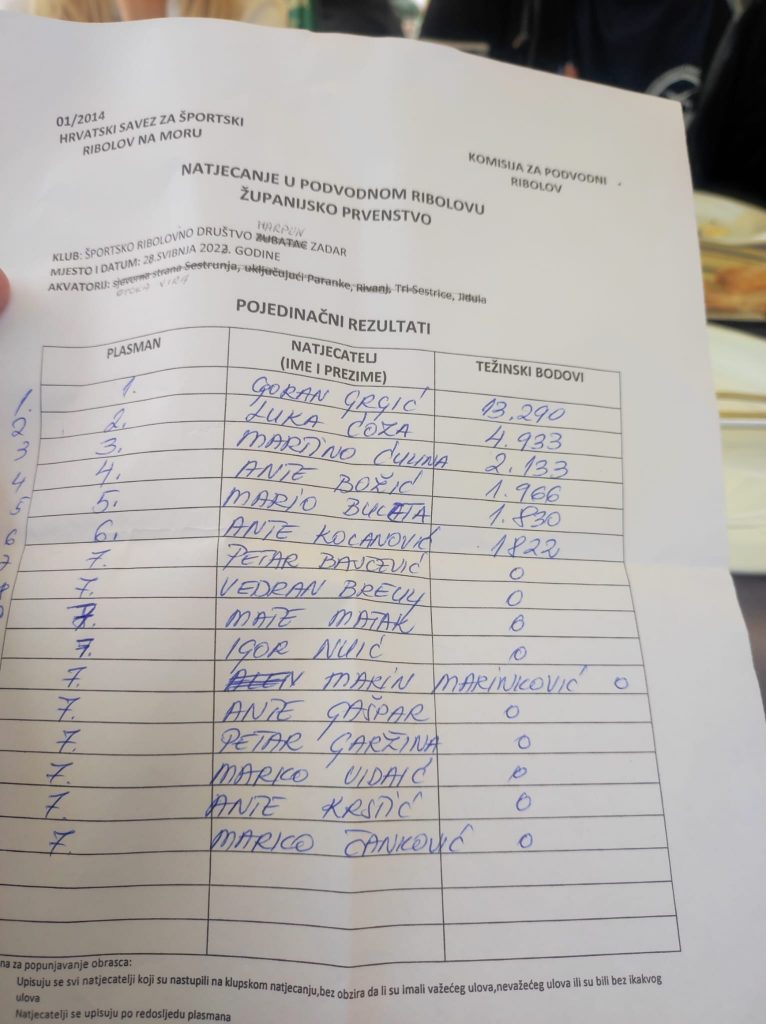 01/2014
HRVATSKI SAVEZ ZA ŠPORTSKI
RIBOLOV NA MORU
KOMISIJA ZA PODVODNI
RIBOLOV
NATJECANJE U PODVODNOM RIBOLOVU
ŽUPANIJSKO PRVENSTVO
HARPUN
KLUB: ŠPORTSKO RIBOLOVNO DRUŠTVO ZUBATAC ZADAR
MJESTO I DATUM: 28.SVIBNJA 2022. GODINE
AKVATORIJ: sjeverna strana Sestrunja, uključujući Paranke, Rivanj, Tri Sestrice, Jidula
OTOKA VIRA
POJEDINAČNI REZULTATI
PLASMAN NATJECATELJ (IME I PREZIME) TEŽINSKI BODOVI
1. 1. GORAN GRGIĆ 13.290
2 2. LUKA ĆOZA 4.933
3 3. MARTINO ĆULINA 2.133
4 4. ANTE BOŽIĆ 1.966
5 5. MARIO BUCATA 1.830
6 6. ANTE KOLANOVIĆ 1822
7 7. PETAR BAVČEVIĆ 0
7. VEDRAN 0
7. MATE MATAK 0
7. IGOR 0
7. ALEN MARIN MARINKOVIĆ 0
7. ANTE GAŠPAR 0
7. PETAR GARŽINA 0
7. MARKO VIDAIĆ 0
7. ANTE KRSTIĆ 0
7. MARKO ČANKOVIĆ 0
na za popunjavanje obrasca:
Upisuju se svi natjecatelji koji su nastupili na klupskom natjecanju,bez obzira da li su imali važećeg ulova,nevažećeg ulova ili su bili bez ikakvog
ulova
Natjecatelji se upisuju po redosljedu plasmana